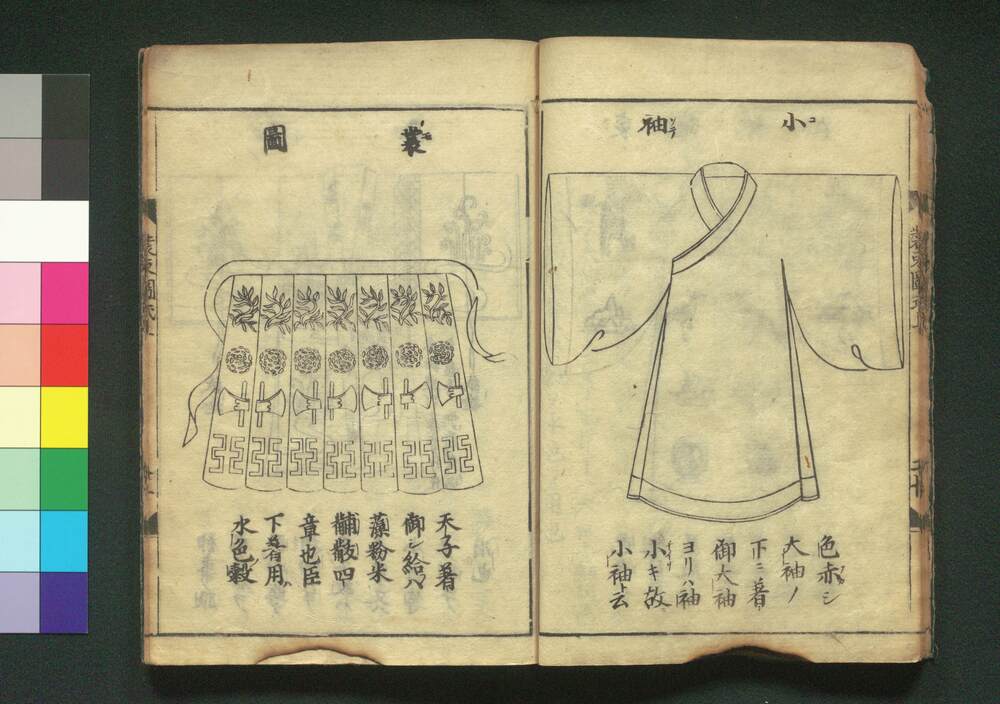 小袖
色赤シ
大袖ノ
下ニ着
御大袖
ヨリハ袖
小キ故
小袖ト云
裳圖
天子着
御シ給ハ
藻粉米
黼黻四
章也臣
下着用
水色縠